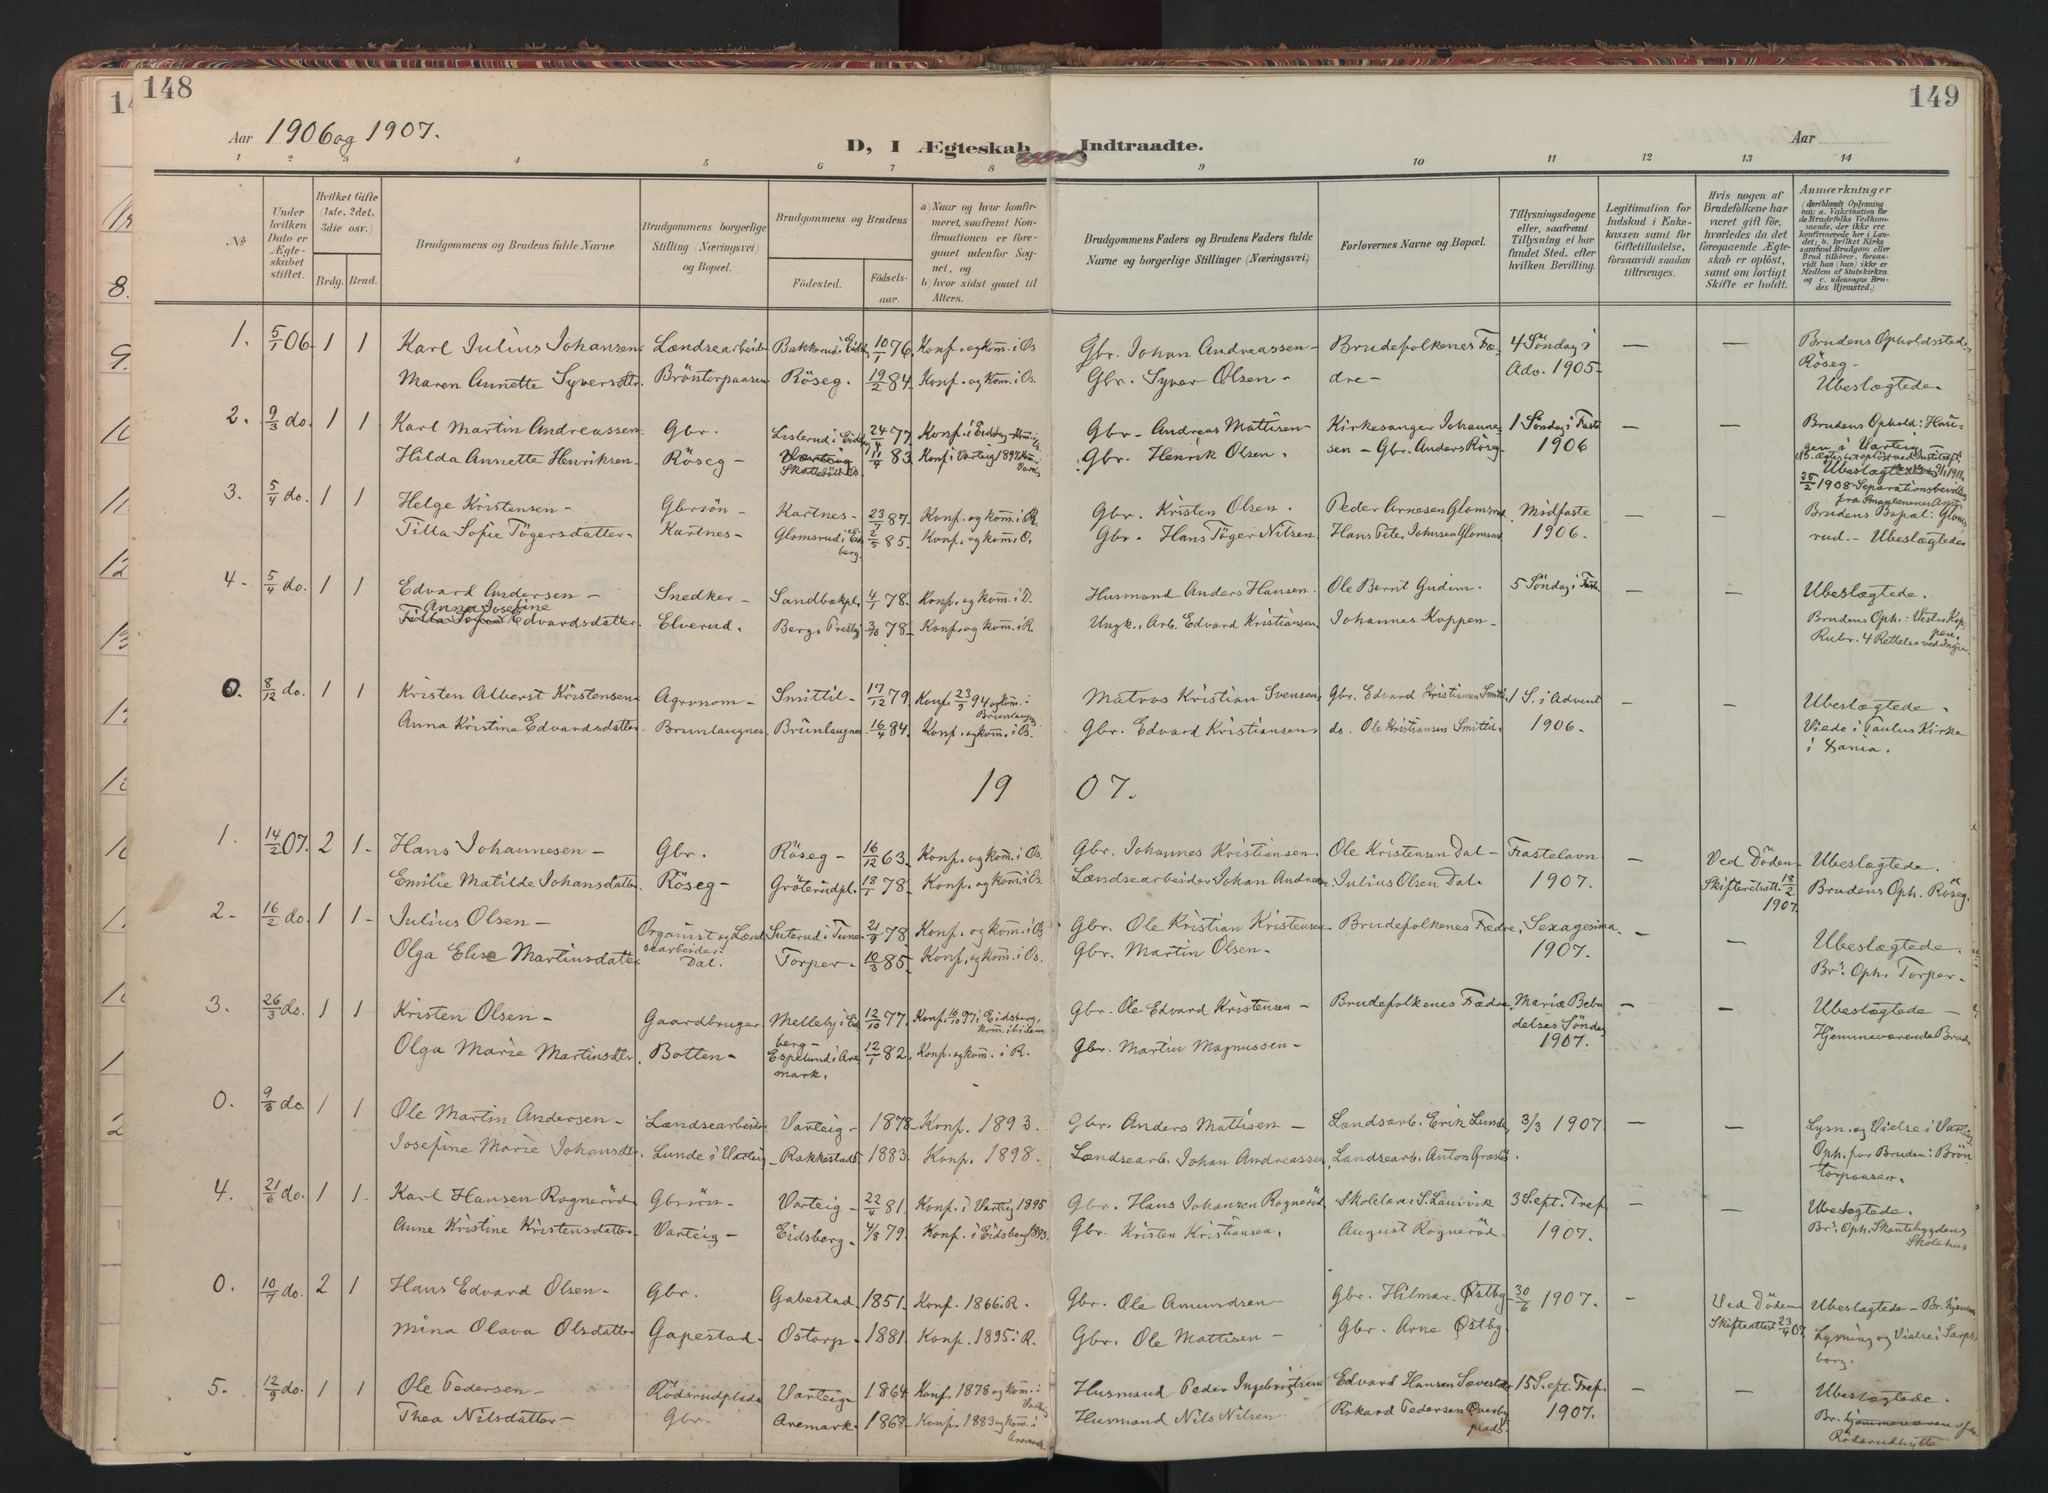 148
149
Aar 1906 og 1907.
D, I Ægteskab Indtraadte.
Aar
1 2 3 4 5 6 7 8 9 10 11 12 13 14
No
Under hvilken Dato er Ægteskabet stiftet.
Hvilket Gifte (1ste, 2det, 3die osv.)
Brdg. Brud.
Brudgommens og Brudens fulde Navne
Brudgommens borgerlige Stilling (Næringsvei) og Bopæl.
Brudgommens og Brudens
Födested.
Födselsaar.
a) Naar og hvor konfirmeret, saafremt Konfirmationen er foregaaet udenfor Sognet, og
b) hvor sidst gaaet til Alters.
Brudgommens Faders og Brudens Faders fulde Navne og borgerlige Stillinger (Næringsvei)
Forlovernes Navne og Bopæl.
Tillysningsdagene eller, saafremt Tillysning ei har fundet Sted, efter hvilken Bevilling.
Legitimation for Indskud i Enkekassen samt for Giftetilladelse, forsaavidt saadan tiltrænges.
Hvis nogen af Brudefolkene har været gift før, hvorledes da det foregaaende Ægteskab er oplöst, samt om lovligt Skifte er holdt.
Anmærkninger (deriblandt Oplysning om: a. Vakcination for de Brudefolks Vedkommende, der ikke ere konfirmerede her i Landet; b. hvilket Kirkesamfund Brudgom eller Brud tilhörer, forsaavidt han (hun) ikke er Medlem af Statskirken og c. udensogns Brudes Hjemsted.)
1. 5/1 06 1 1 Karl Julius Johansen Lændsearbeider Bakkerud i Eidsbg 10/1 76. Konf. og kom. i Os Gbr. Johan Andreassen – Brudefolkenes Fæ- 4 Söndag i — — Brudens Opholdssted
Maren Annette Syversdtr. Bröntorpaasen Röseg. 19/2 84. Konf. og kom. i Os. Gbr. Syver Olsen – dre – Adv. 1905 – Röseg –
Ubeslægtede.
2. 9/3 do. 1 1 Karl Martin Andreassen Gbr. Eidsbg 24/4 77. Konf. i Eidsbg – Gbr. Andreas Mattisen Kirkesanger Johanne- 1 Söndag i Faste — — Brudens Ophold: Hau-
Hilda Annette Henriksen – Röseg – Varteig 11/4 83. Konf. i Varteig 1897 Gbr. Henrik Olsen. sen – Gbr. Anders Röseg – 1906 gen i Varteig
Ubeslægtede
25/2 1908 Separationsbevilling
3. 5/4 do. 1 1 Helge Kristensen – Gbrsön – Kartnes – 23/7 87. Konf. og kom. i R. Gbr. Kristen Olsen. Peder Arnesen Glomsrud. Midfaste — — Brudens Bopæl: Gloms-
Tilla Sofie Tögersdatter – Kartnes – Glomsrud i Eidsberg. 2/5 85. Konf. og kom. i O. Gbr. Hans Töger Nilsen Hans Peter Johnsen Glomsrud 1906. rud. – Ubeslægtede
4. 5/4 do. 1 1 Edvard Andersen – Snedker – Sandbækpl. 4/1 78. Konf. og kom. i D. Husmand Anders Hansen Ole Bernt Gudim. 5 Söndag i Faste — — Ubeslægtede.
Anna Josefine
Tilla Sofie Edvardsdatter Elverud. Bergs Prestgj. 3/10 78. Konf. og kom. i R. Ungk. Arb. Edvard Kristiansen. Johannes Koppen – Brudens Oph.: Vestre Koppen.
Rubr. 4 Rettelse ved
0. 8/12 do. 1 1 Kristen Albert Kristensen Agronom – Smittil – 17/12 79. Konf. 23/9 94 og kom. i Brunlaugnes Matros Kristian Svensen, Gbr. Edvard Kristiansen Smittil. 1 S. i Advent — — Ubeslægtede.
Anna Kristine Edvardsdatter Brunlaugnes Brünlaugnes 16/4 84. Konf. og kom. i Os. Gbr. Edvard Kristiansen do. Ole Kristiansen Smittil. 1906. Viede i Paulus Kirke
i Xania.
19 07.
1. 14/2 07. 2 1 – Hans Johannesen – Gbr. Röseg – 16/12 63. Konf. og kom. i Os. Gbr. Johannes Kristiansen. Ole Kristensen Dal – Fastelavn — Ved Döden – Ubeslægtede.
Emilie Matilde Johansdatter Röseg – Gröterudpl. 18/1 78. Konf. og kom. i Os. Lændsearbeider Johan Andreas. Julius Olsen Dal. 1907. Skifteretsatt. 18/2 1907. Brudens Oph. Röseg.
2. 16/2 do. 1 1 – Julius Olsen – Organist og Lændsearbeider Suterud i Tune 21/9 78. Konf. og kom. i Os Gbr. Ole Kristian Kristensen – Brudefolkenes Fædre. Sexagesima — — Ubeslægtede.
Olga Elise Martinsdatter Dal. Torper. 10/3 85. Konf. og kom. i Os. Gbr. Martin Olsen – 1907. Br. Oph. Torper –
3. 26/3 do. 1 1 Kristen Olsen – Gaardbruger Melleby i Eidsberg – 12/10 77. Konf. 16/10 97 i Eidsberg, kom. ibidem Gbr. Ole Edvard Kristensen – Brudefolkenes Fædre. Mariæ Bebudelses Söndag — — Ubeslægtede –
Olga Marie Martinsdtr. Botten – Espelund i Aremark. 12/1 82. Konf. og kom. i R. Gbr. Martin Magnussen – 1907. Hjemmeværende Brud
0. 9/3 do. 1 1 Ole Martin Andersen – Lændsearbeider Varteig – 1878 – Konf. 1893. Gbr. Anders Mattisen – Landsarb. Erik Lunde 3/3 1907 — — Lysn. og Vielse i Varteig
Josefine Marie Johansdtr. Lunde i Varteig – Rakkestad – 1883. Konf. 1898. Lændsearb. Johan Andreassen. Landsearb. Anton Græsli. Oph. for Bruden: Bröntorpaasen.
4. 21/6 do. 1 1. Karl Hansen Rogneröd Gbrsön – Varteig – 22/4 81. Konf. i Varteig 1895 Gbr. Hans Johansen Rogneröd Skolelærer S. Lauvik 3 S. ept. Tref. — — Ubeslægtede.
Anne Kristine Kristensdatter. Varteig – Eidsberg – 4/8 79. Konf. i Eidsberg 1893. Gbr. Kristen Kristiansen. August Rogneröd. 1907. Br. Oph. Skantebygdens Skolehus
0. 10/7 do. 2 1 Hans Edvard Olsen – Gbr. Gabestad 1851. Konf. 1866 i R. Gbr. Ole Amundsen – Gbr. Hilmar Østby 30/6 1907. — Ved Döden Ubeslægtede – Br. hjemme
Mina Olava Olsdatter Gapestad. Ostorp – 1881. Konf. 1895 i R. Gbr. Ole Mattisen – Gbr. Arne Østby. Skifteattest 23/4 07. Lysning og Vielse i Sarpsborg.
5. 12/9 do. 1 1 Ole Pedersen – Rödsrudplads Varteig – 1864 Konf. 1878 og kom. i Varteig Husmand Peder Ingebrigtsen Edvard Hansen Sævestad 15 S. ept. Tref. — — Ubeslægtede.
Thea Nilsdatter – Gbr. Aremark. 1868 – Konf. 1883 og kom. i Aremark Husmand Nils Nilsen Rikard Pedersen Øverbyplads. 1907. Br. hjemmeværende
Rödsrudhytte